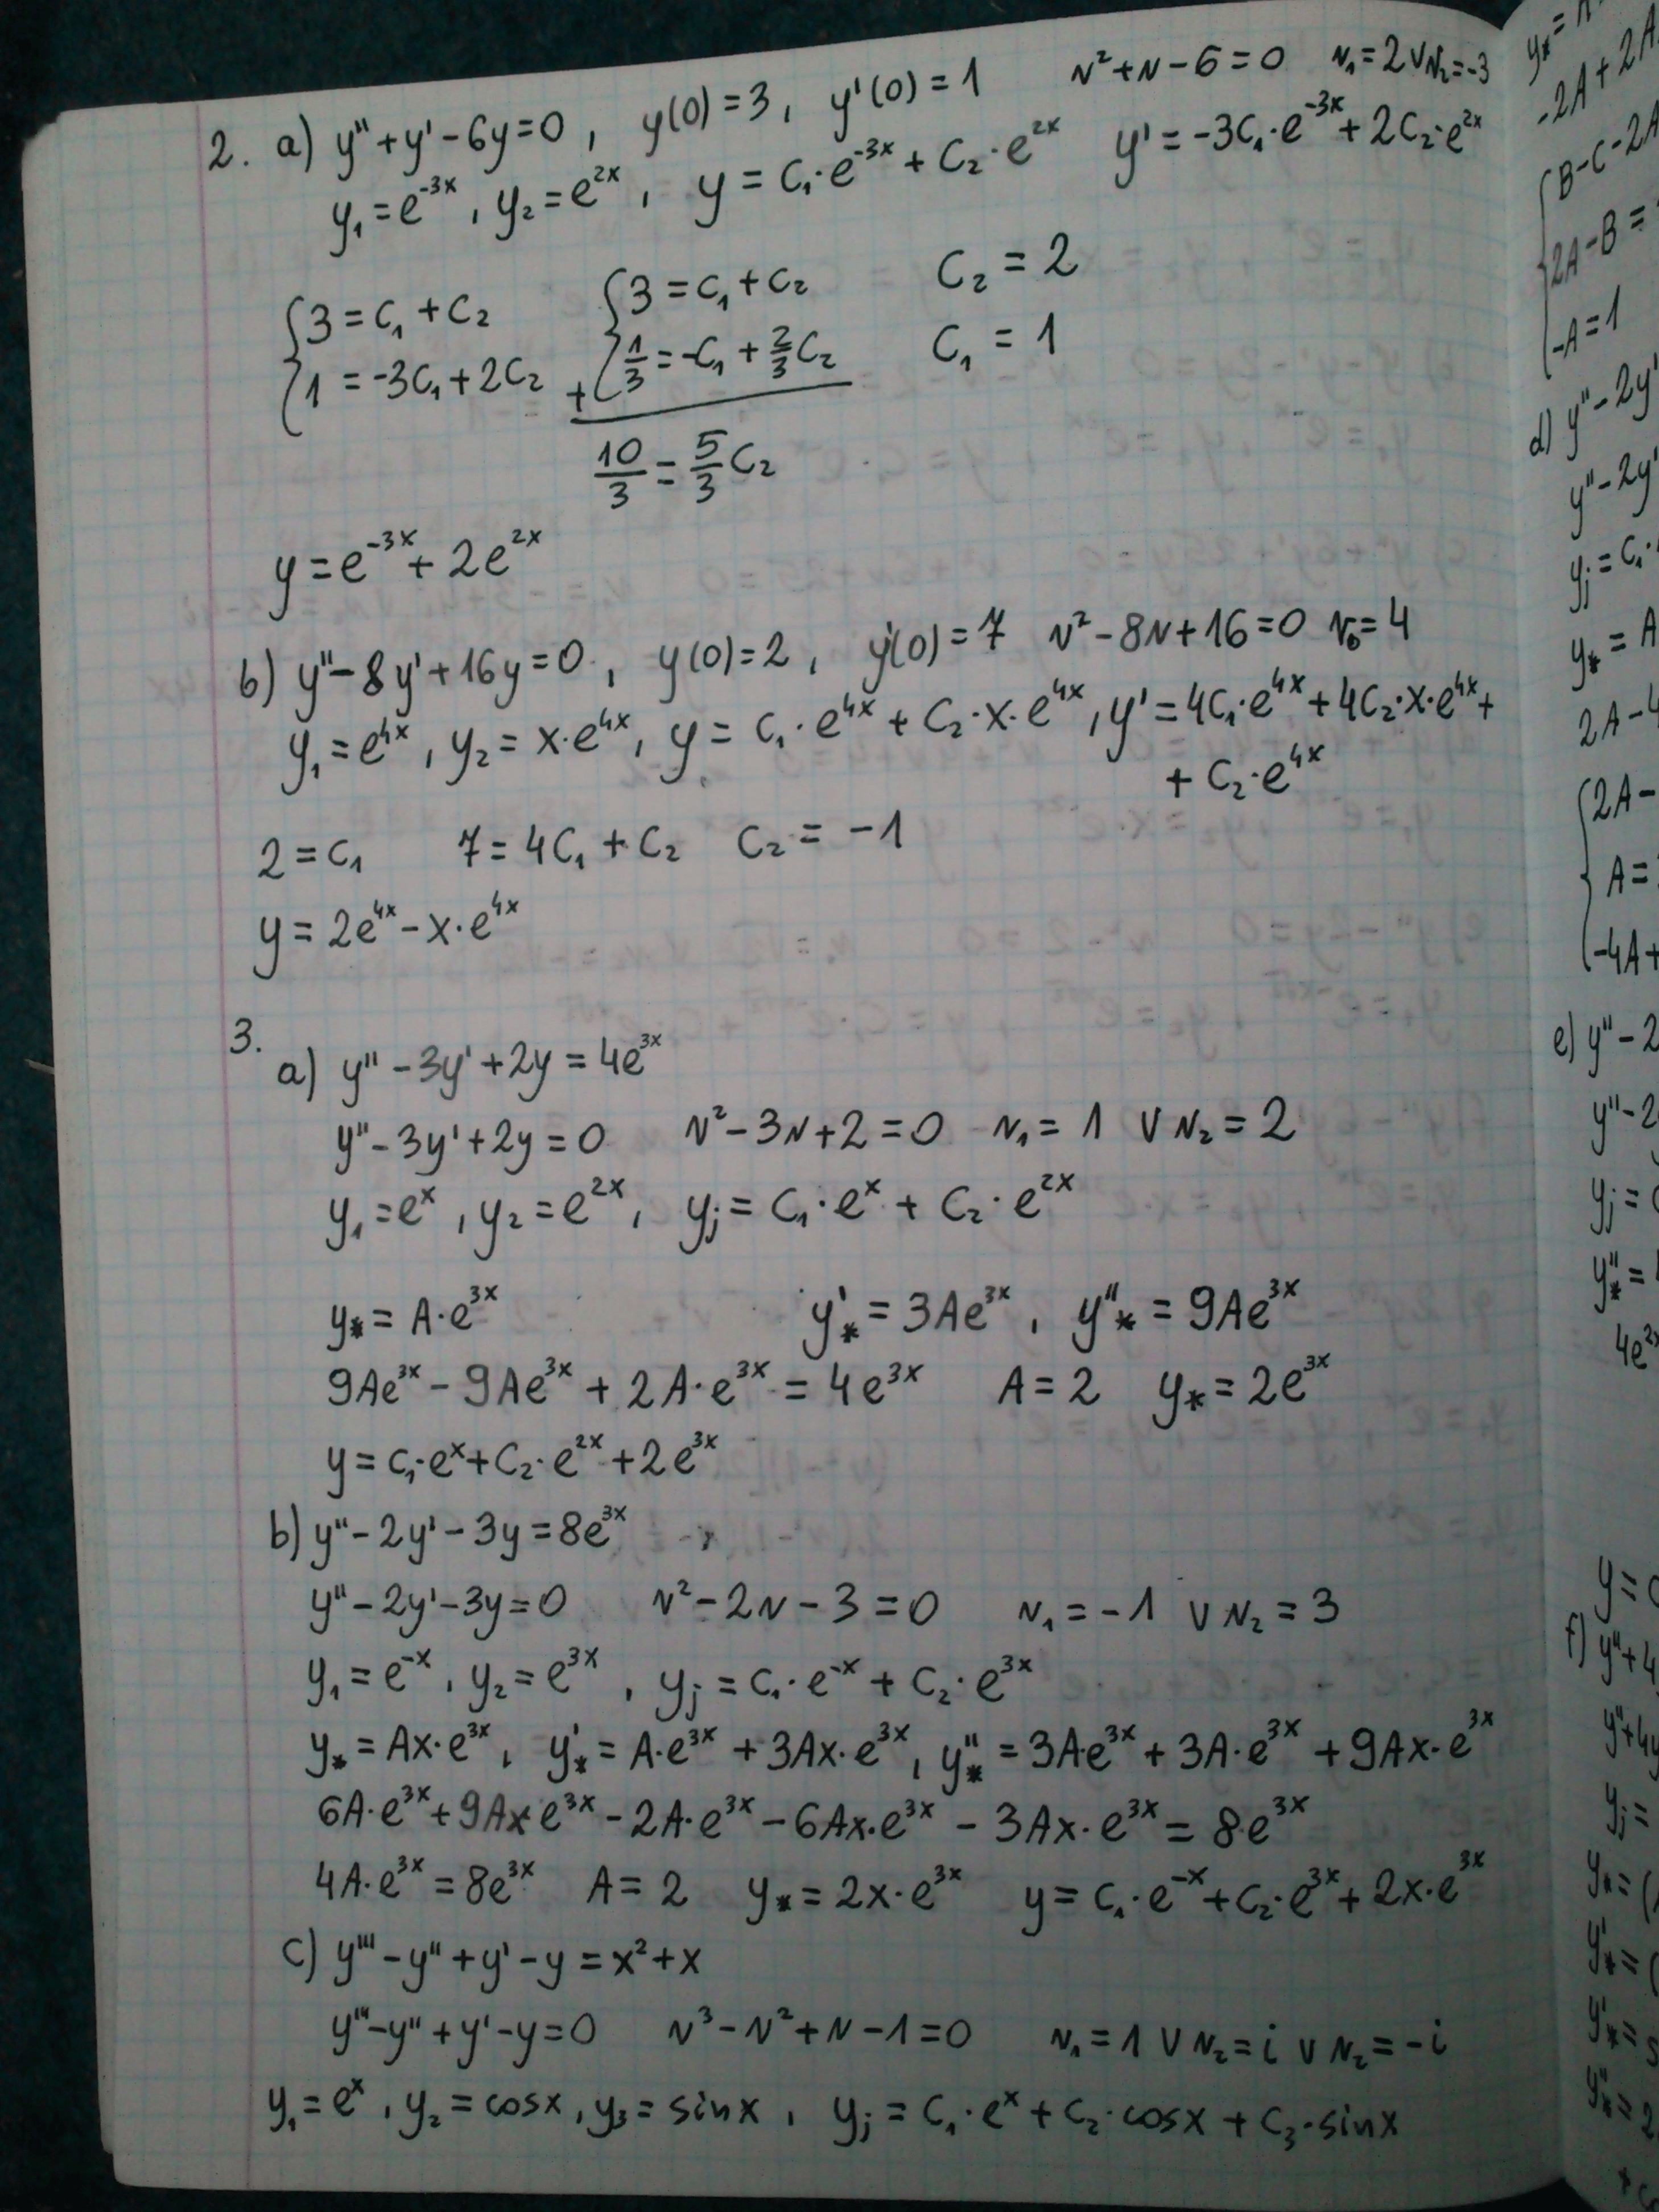 2. a) y'' + y' - 6y = 0 , y(0) = 3 , y'(0) = 1 r² + r - 6 = 0 r₁ = 2 ∨ r₂ = -3
y₁ = e⁻³ˣ , y₂ = e²ˣ , y = C₁·e⁻³ˣ + C₂·e²ˣ y' = -3C₁·e⁻³ˣ + 2C₂·e²ˣ
{3 = C₁ + C₂ {3 = C₁ + C₂ C₂ = 2
{1 = -3C₁ + 2C₂ + {1/3 = -C₁ + 2/3 C₂ C₁ = 1
10/3 = 5/3 C₂
y = e⁻³ˣ + 2e²ˣ
b) y'' - 8y' + 16y = 0 , y(0) = 2 , y'(0) = 7 r² - 8r + 16 = 0 r₀ = 4
y₁ = e⁴ˣ , y₂ = x·e⁴ˣ , y = C₁·e⁴ˣ + C₂·x·e⁴ˣ , y' = 4C₁·e⁴ˣ + 4C₂·x·e⁴ˣ +
+ C₂·e⁴ˣ
2 = C₁ 7 = 4C₁ + C₂ C₂ = -1
y = 2e⁴ˣ - x·e⁴ˣ
3.
a) y'' - 3y' + 2y = 4e³ˣ
y'' - 3y' + 2y = 0 r² - 3r + 2 = 0 r₁ = 1 ∨ r₂ = 2
y₁ = eˣ , y₂ = e²ˣ , yⱼ = C₁·eˣ + C₂·e²ˣ
y* = A·e³ˣ y'* = 3Ae³ˣ , y''* = 9Ae³ˣ
9Ae³ˣ - 9Ae³ˣ + 2A·e³ˣ = 4e³ˣ A = 2 y* = 2e³ˣ
y = C₁·eˣ + C₂·e²ˣ + 2e³ˣ
b) y'' - 2y' - 3y = 8e³ˣ
y'' - 2y' - 3y = 0 r² - 2r - 3 = 0 r₁ = -1 ∨ r₂ = 3
y₁ = e⁻ˣ , y₂ = e³ˣ , yⱼ = C₁·e⁻ˣ + C₂·e³ˣ
y* = Ax·e³ˣ , y'* = A·e³ˣ + 3Ax·e³ˣ , y''* = 3A·e³ˣ + 3A·e³ˣ + 9Ax·e³ˣ
6A·e³ˣ + 9Ax e³ˣ - 2A·e³ˣ - 6Ax·e³ˣ - 3Ax·e³ˣ = 8·e³ˣ
4A·e³ˣ = 8e³ˣ A = 2 y* = 2x·e³ˣ y = C₁·e⁻ˣ + C₂·e³ˣ + 2x·e³ˣ
c) y''' - y'' + y' - y = x² + x
y''' - y'' + y' - y = 0 r³ - r² + r - 1 = 0 r₁ = 1 ∨ r₂ = i ∨ r₂ = -i
y₁ = eˣ , y₂ = cosx , y₃ = sinx , yⱼ = C₁·eˣ + C₂·cosx + C₃·sinx
-2A + 2A
B - C - 2A
2A - B =
-A = 1
d) y'' - 2y'
y'' - 2y'
yⱼ = C₁·
y* = A
2A - 4
2A -
A =
-4A +
e) y'' - 2
y'' - 2
yⱼ =
y''* =
4e²ˣ
y =
f) y'' + 4
y'' + 4y
yⱼ =
y* = (
y'* = (